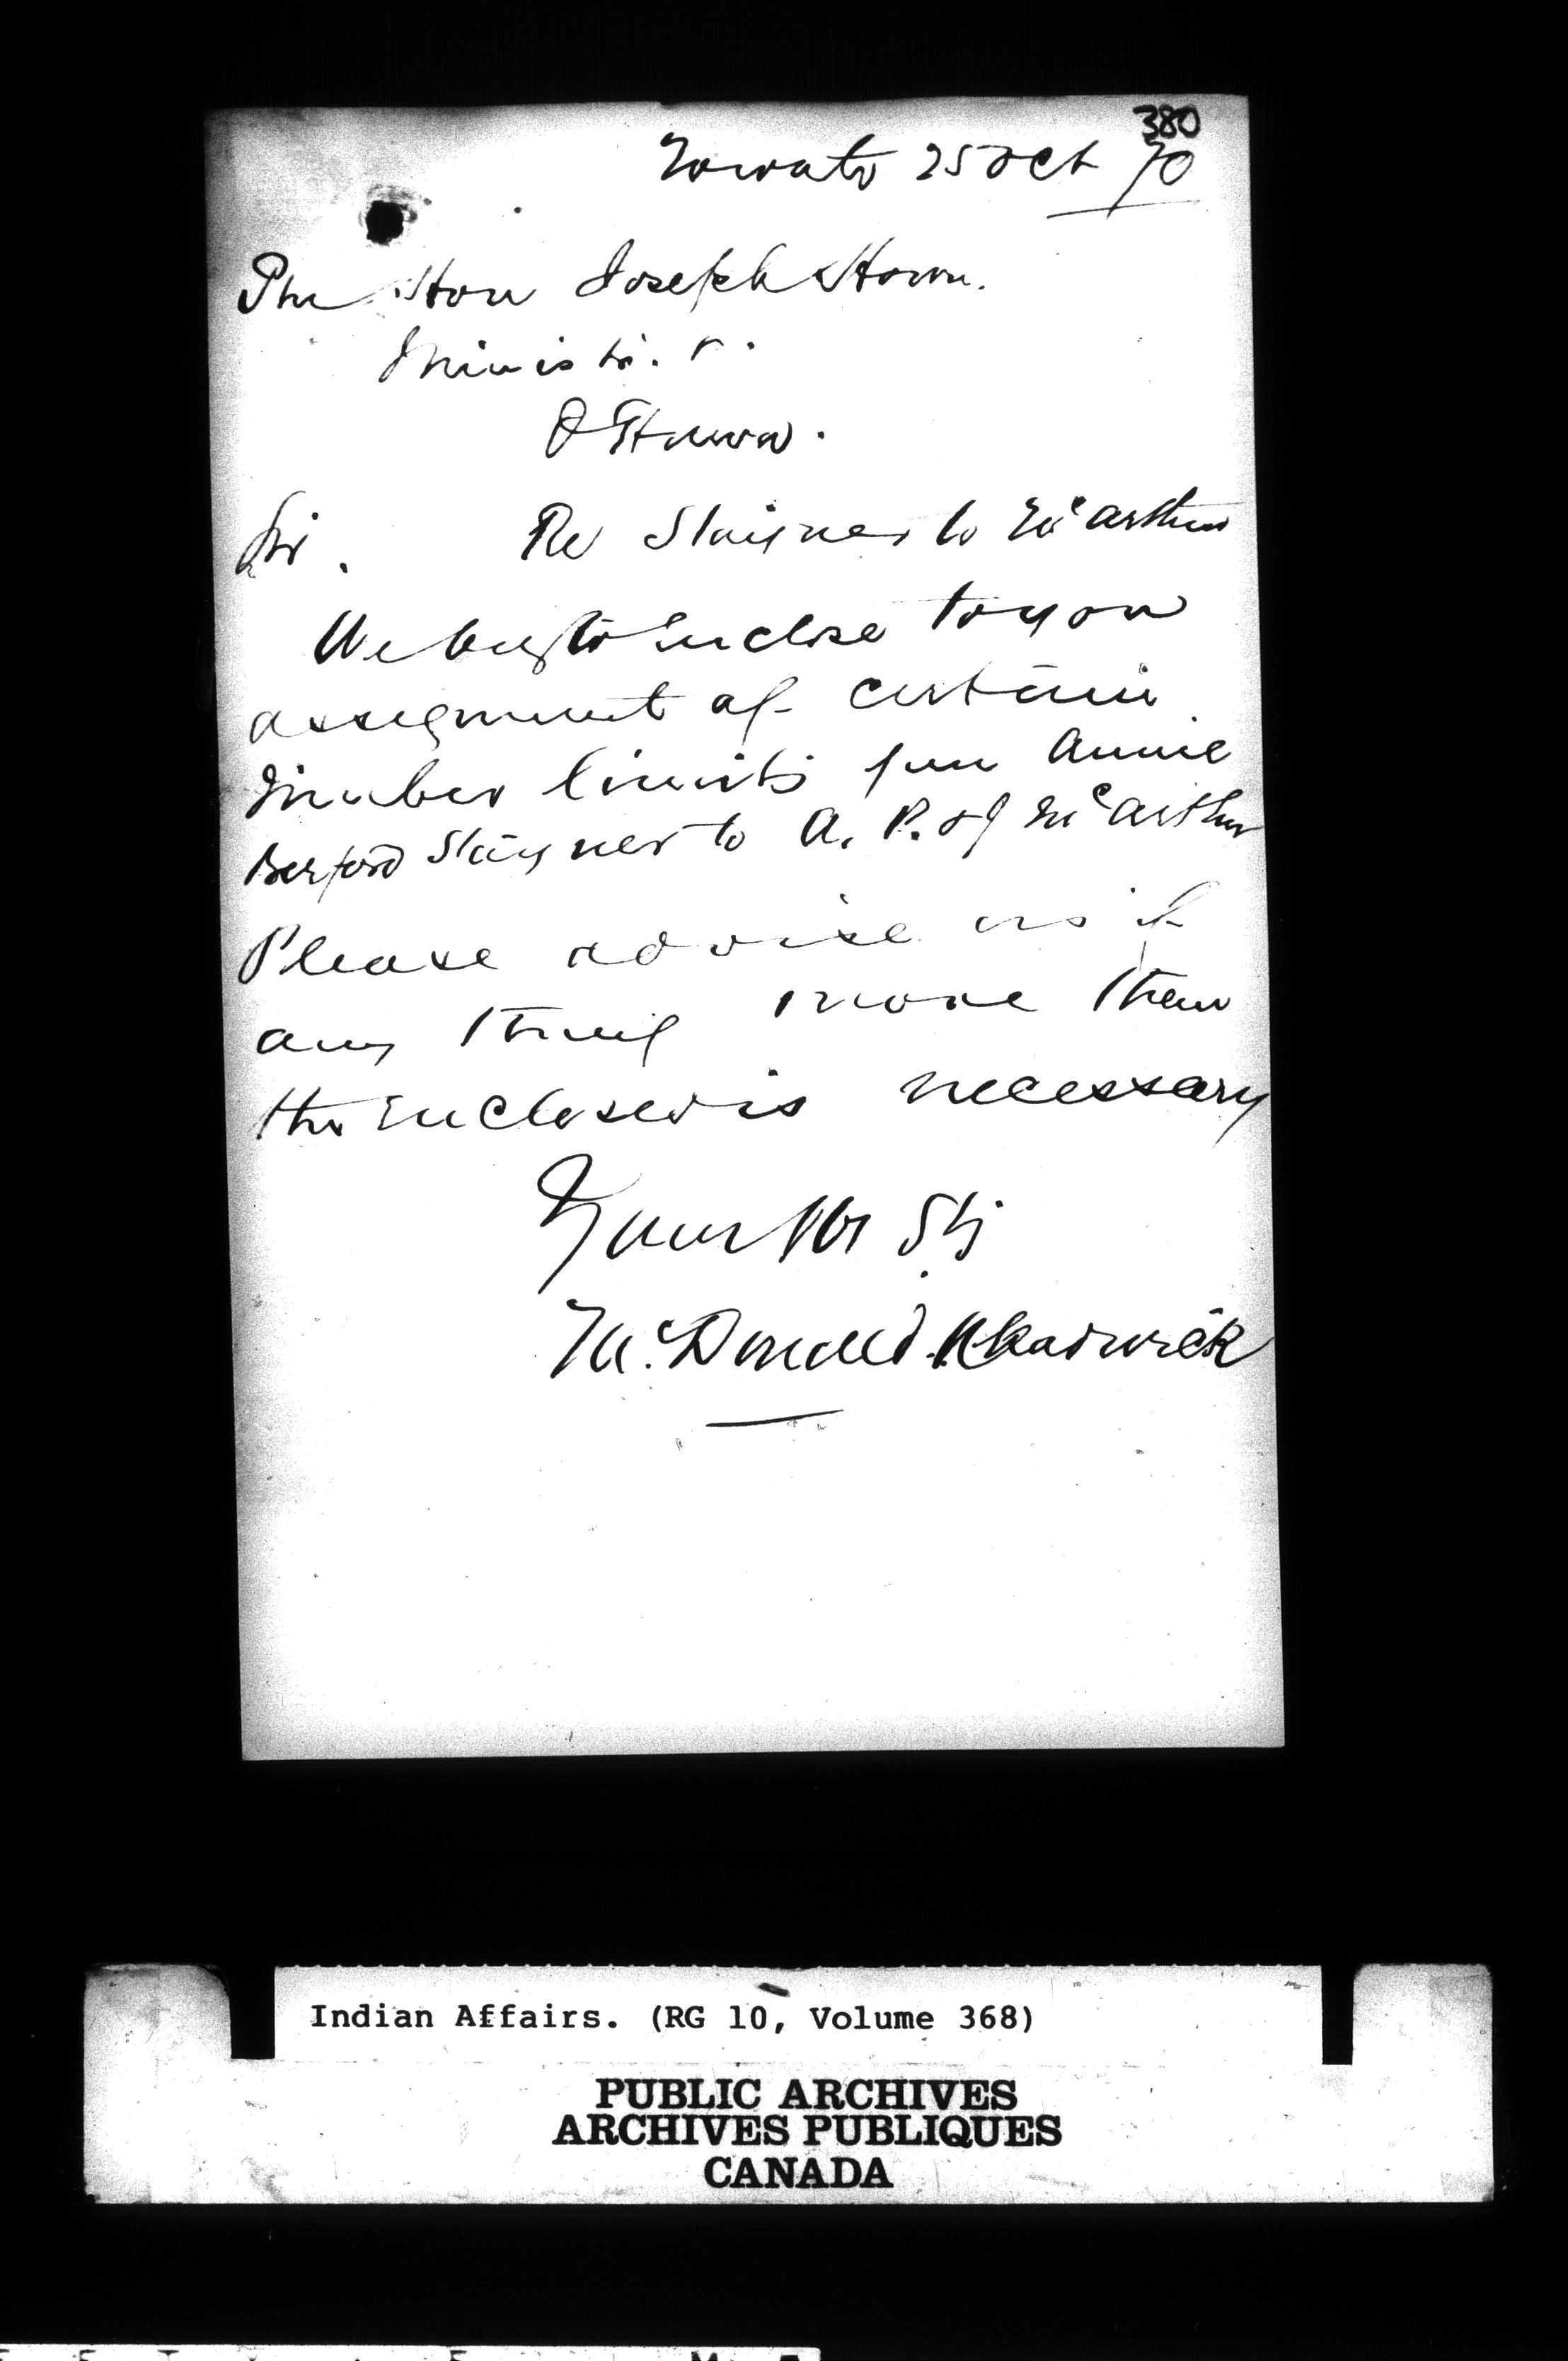 380
Toronto 25 Oct 70
The Hon Joseph Howe.
Minister
Ottawa.
Sir. Re Stayner to McArthur
We beg to enclose to you
assignment of certain
timber limits from Annie
Berford Stayner to A. P. & J McArthur
Please advise us if
any thing more than
the enclosed is necessary
Yours
McDonald & Chadwick
Indian Affairs. (RG 10, Volume 368)
PUBLIC ARCHIVES
ARCHIVES PUBLIQUES
CANADA